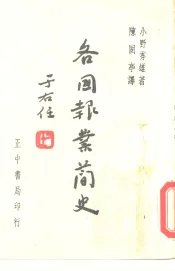 小野秀雄著
陳固亭譯
各國報業簡史
于右任
正中書局印行